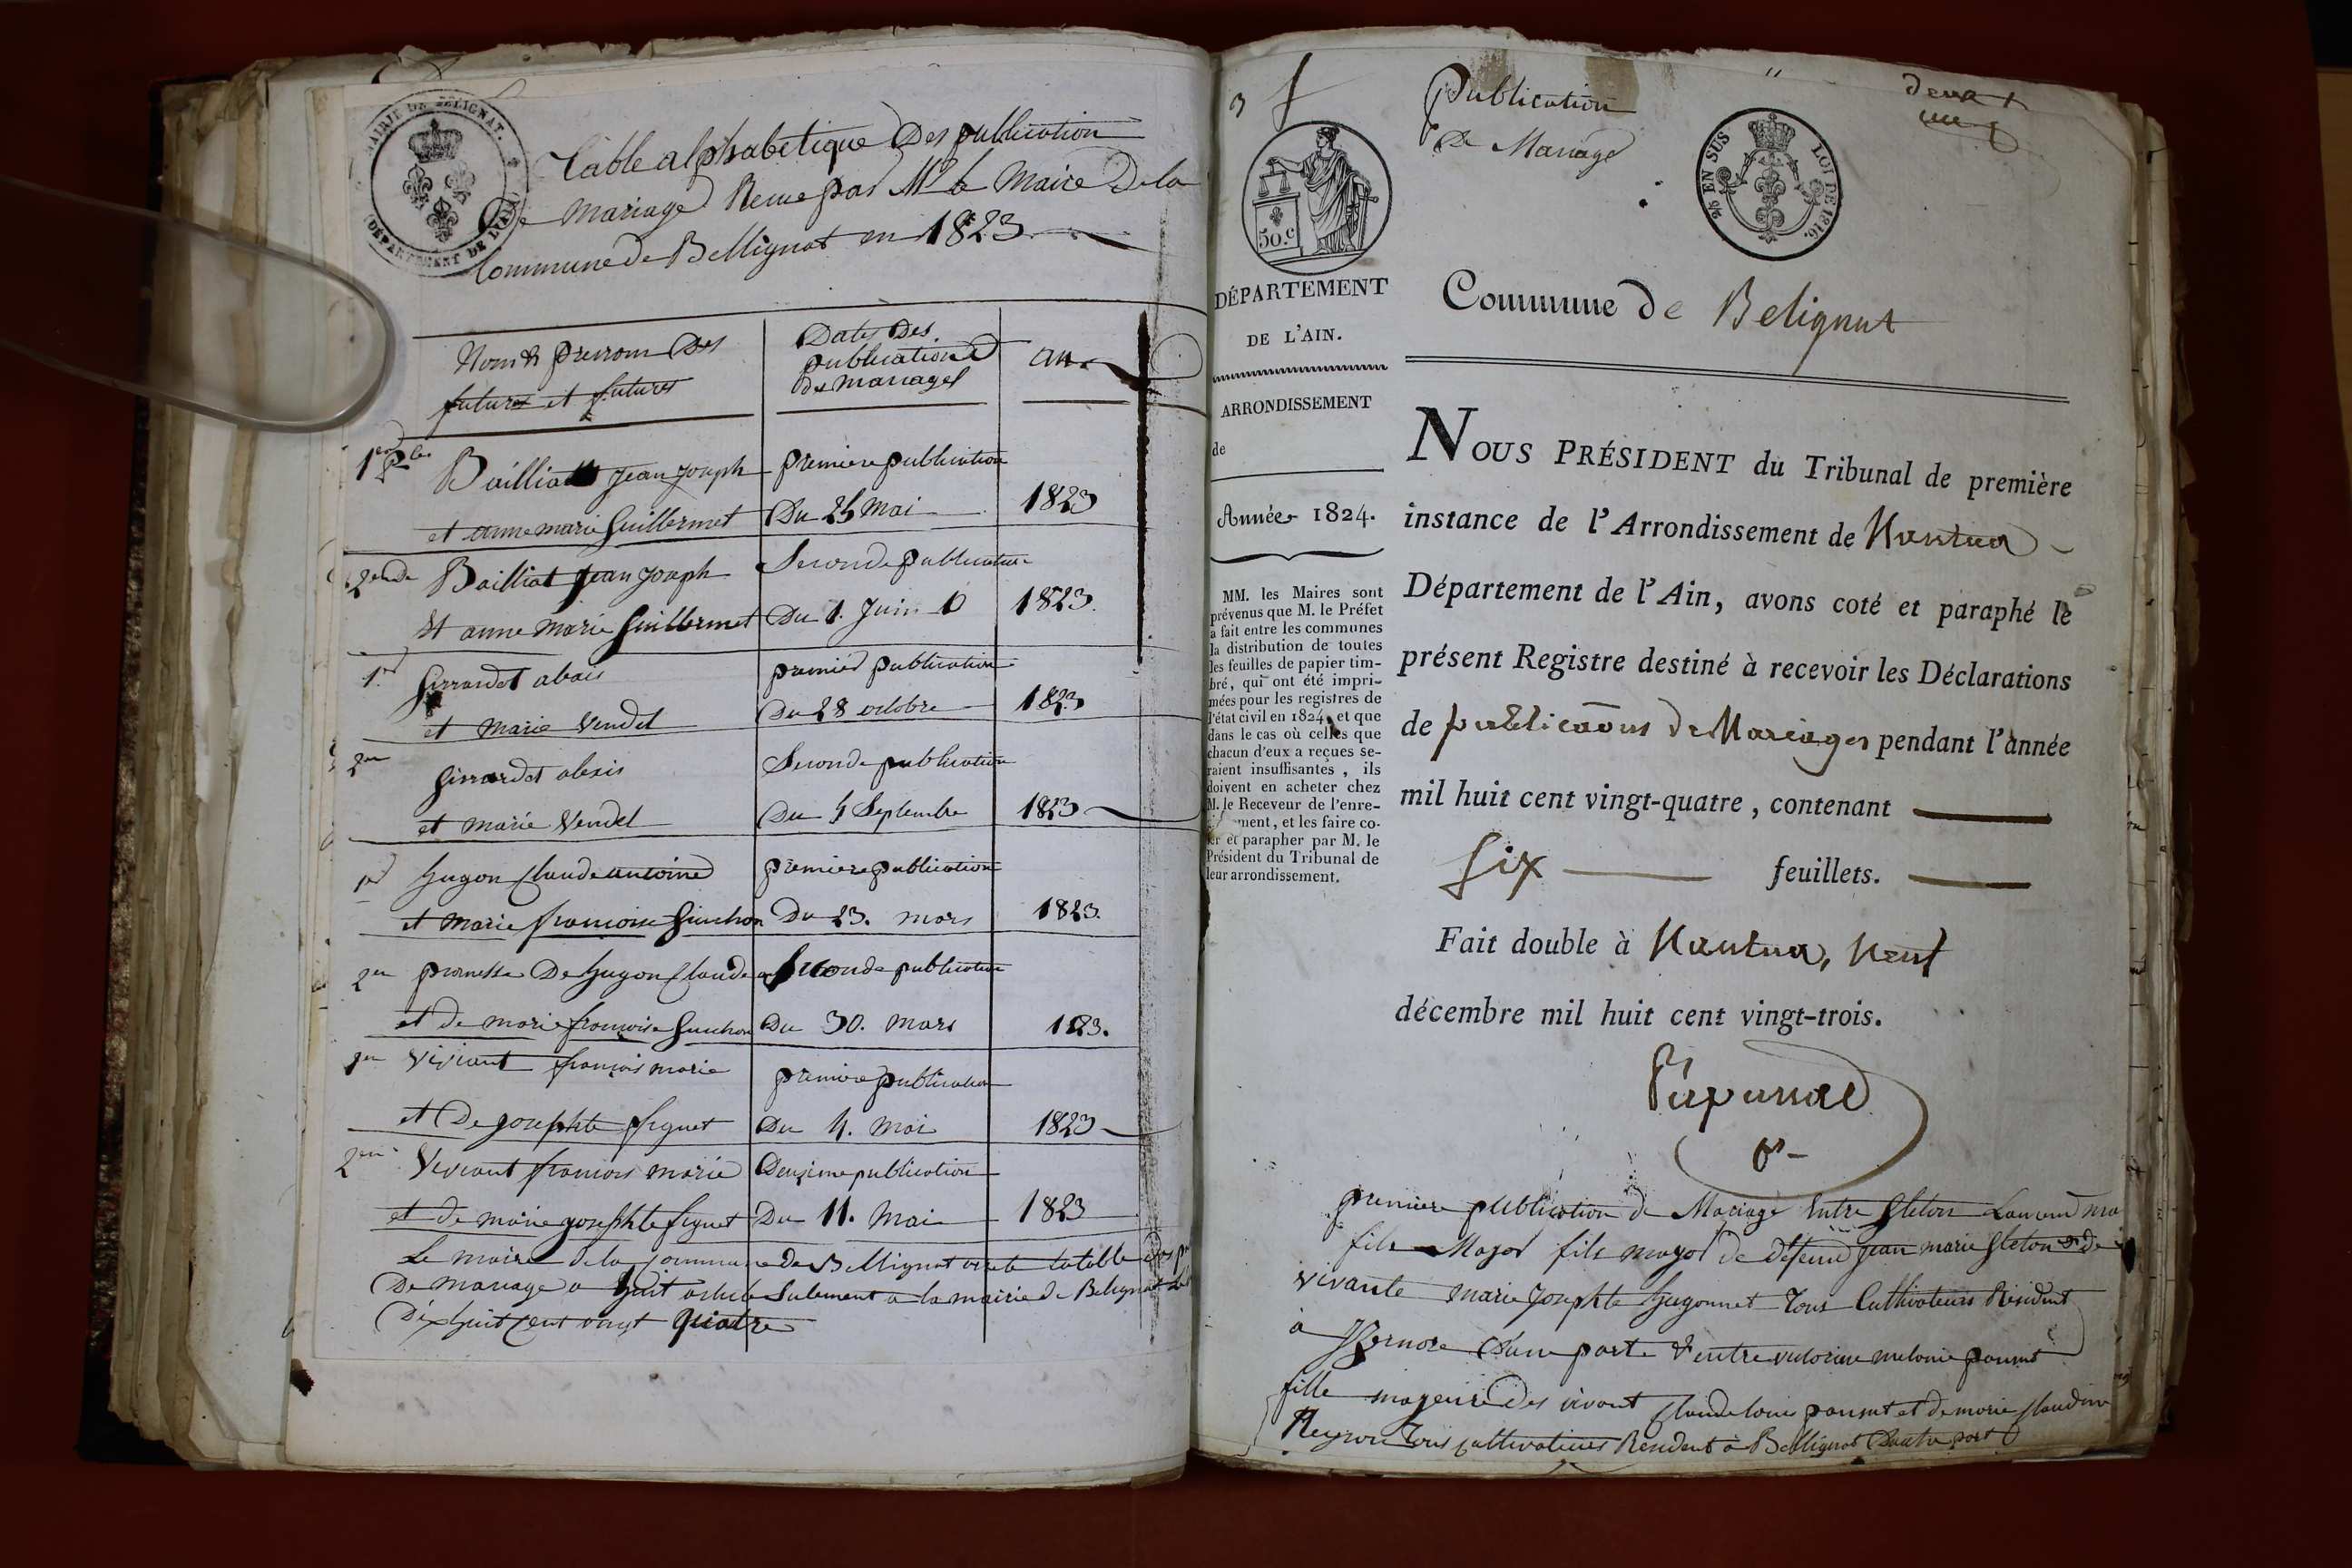 MAIRIE DE BELIGNAT.
(DÉPARTEMENT DE L'AIN)
Table alphabetique Des publication
De mariage Reçue par Mr le Maire De la
Commune de Bellignat en 1823
Nom & prenom Des
futures et futures
Dates Des
publications
de mariages
an
1er Bailliat Jean Joseph premiere publication
et anne marie Guillermet Du 25 Mai 1823
2ende Bailliat Jean Joseph Seconde publication
et anne Marie Guillermet Du 1. Juin 1823.
1er Girrardet abais premier publication
et marie Vendel Du 28 octobre 1823
2em Girrardet alexis Seconde publication
et marie Vendel Du 4 Septembre 1823
1er hugon Claude antoine premiere publication
et Marie francoise Guichon Du 23. mars 1823.
2em promesse De hugon Claude a Seconde publication
et de marie francoise Guichon Du 30. Mars 1823.
1er Viviant françois marie premiere publication
et De josephte figuet Du 4. Mai 1823
2em Viviant francois marie Deuxime publication
et de marie josephte figuet Du 11. Mai 1823
Le maire de la Commune de Bellignat la table
De mariage a huit article Sulement a la mairie de Belignat
Dix huit Cent vingt quatre
3
Publication
De Mariage
deux
un
50.c
EN SUS
LOI DE 1816.
DÉPARTEMENT
DE L'AIN.
ARRONDISSEMENT
de
Année 1824.
MM. les Maires sont
prévenus que M. le Préfet
a fait entre les communes
la distribution de toutes
les feuilles de papier tim-
bré, qui ont été impri-
mées pour les registres de
l'état civil en 1824, et que
dans le cas où celles que
chacun d'eux a reçues se-
raient insuffisantes, ils
doivent en acheter chez
M. le Receveur de l'enre-
ment, et les faire co-
ter et parapher par M. le
Président du Tribunal de
leur arrondissement.
Commune de Belignat
NOUS PRÉSIDENT du Tribunal de première
instance de l'Arrondissement de Nantua
Département de l'Ain, avons coté et paraphé le
présent Registre destiné à recevoir les Déclarations
de publicaons de Mariages pendant l'année
mil huit cent vingt-quatre, contenant
Six feuillets.
Fait double à Nantua, Neuf
décembre mil huit cent vingt-trois.
premiere publication de Mariage Entre Gleton Laurend
fils Major fils mayor de defeund Jean marie Gleton & de
vivante Marie Josephte hugonnet Tous Cultivateurs Résident
à Izernore D'une parte & entre victorine melanie
fille mageure Des vivant Claude louis et de marie Claudine
Reyrou Tous Cultivateurs Resident à Bellignat D'autre part